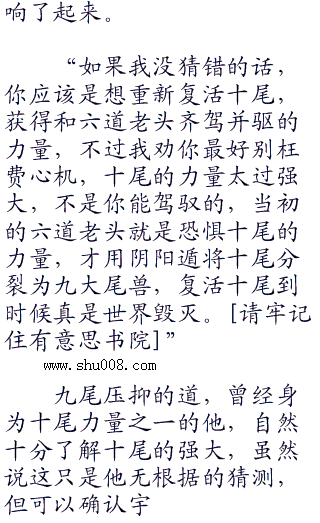 响了起来。
“如果我没猜错的话，
你应该是想重新复活十尾，
获得和六道老头齐驾并驱的
力量，不过我劝你最好别枉
费心机，十尾的力量太过强
大，不是你能驾驭的，当初
的六道老头就是恐惧十尾的
力量，才用阴阳遁将十尾分
裂为九大尾兽，复活十尾到
时候真是世界毁灭。[请牢记
住有意思书院]”
www.shu008.com
九尾压抑的道，曾经身
为十尾力量之一的他，自然
十分了解十尾的强大，虽然
说这只是他无根据的猜测，
但可以确认宇